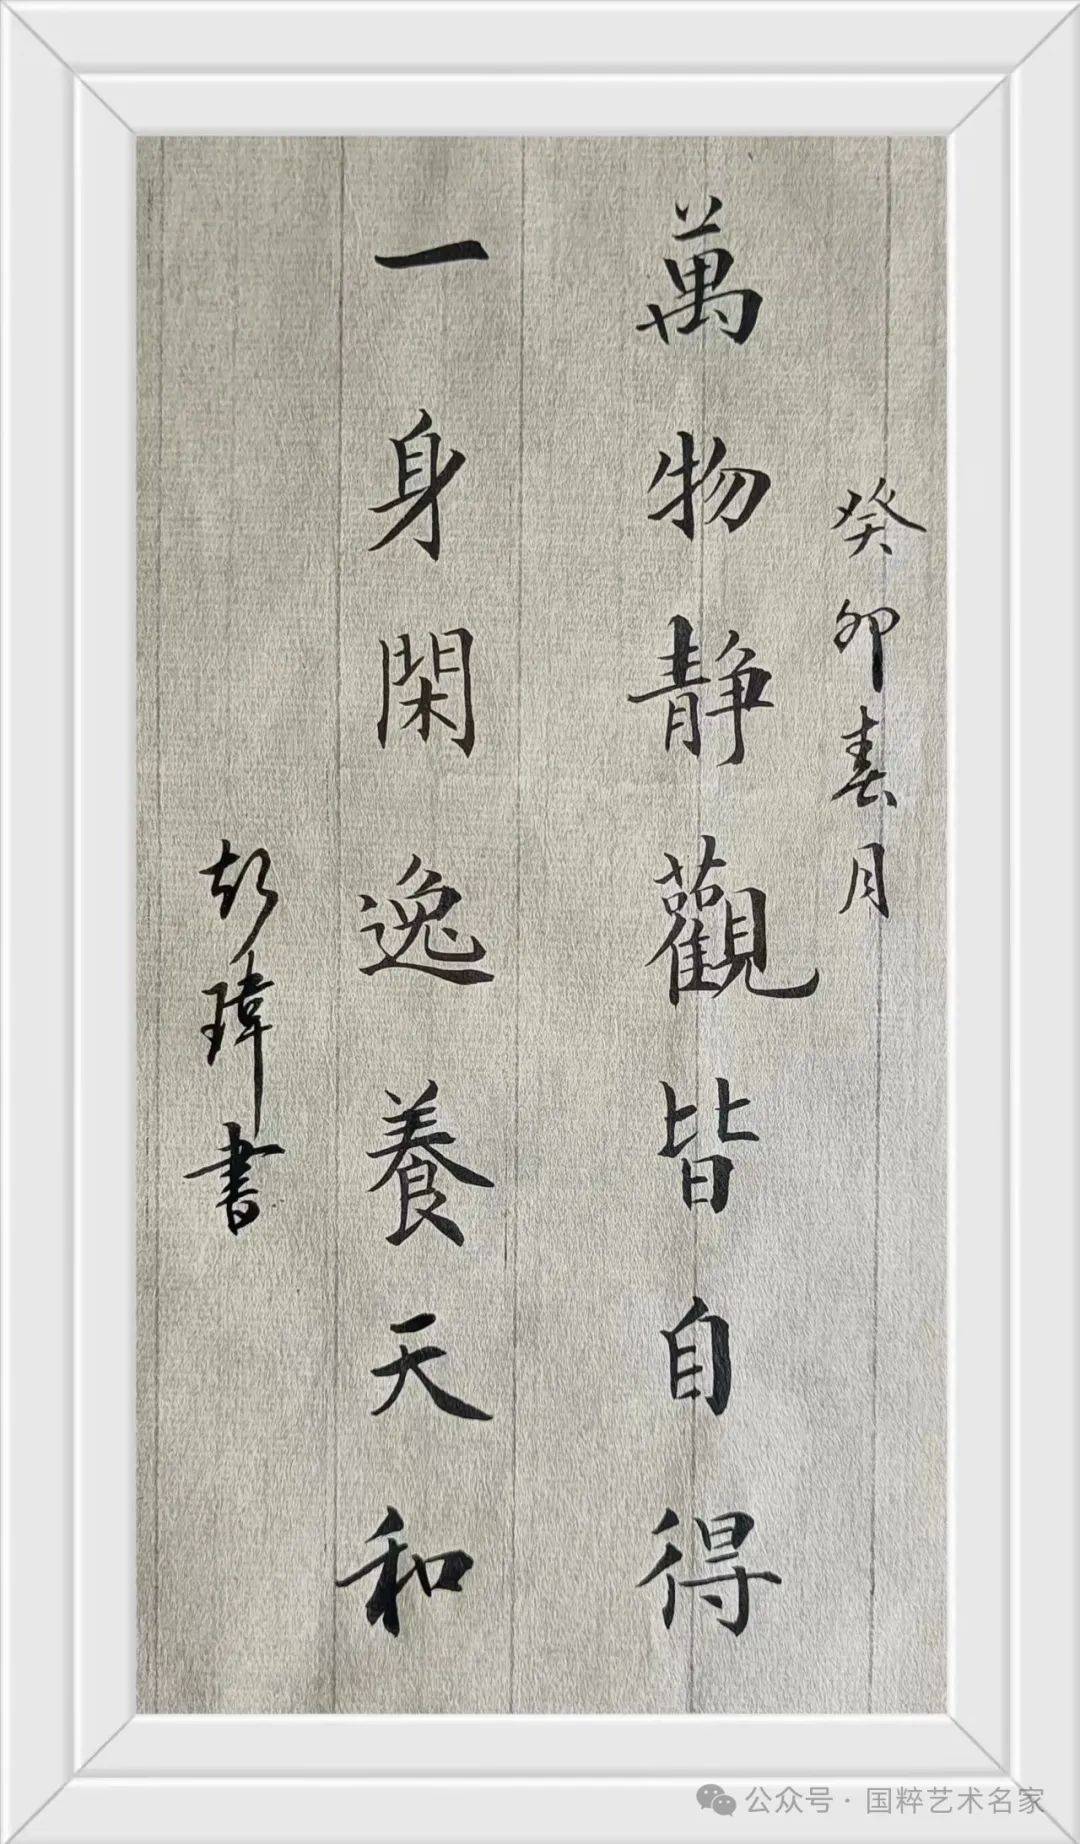 癸卯春月
萬物静觀皆自得
一身閑逸養天和
彭瑋書
公众号·国粹艺术名家